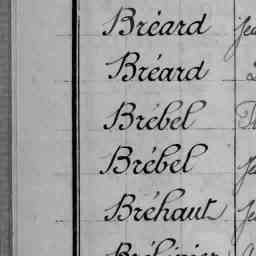 Bréard
Bréard
Brébel
Brébel
Bréhaut